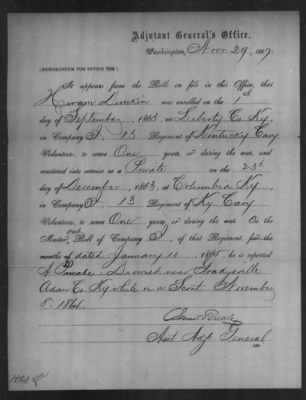 Adjutant General's Office,
Washington, Nov 29, 1887.
[MEMORANDUM FOR OFFICE USE.]
It appears from the Roll on file in this Office, that
was enrolled on the 1st
day of September, 1863, at Liberty Co. Ky.
in Company I, 13 Regiment of Kentucky Cav
Volunteers, to serve One years, or during the war, and
mustered into service as a Private on the 23d
day of December, 1863, at Columbia Ky.
in Company I, 13 Regiment of Ky Cav
Volunteers, to serve One years, or during the war. On the
Muster out Roll of Company I, of that Regiment, for the
month of dated January 10, 1865, he is reported
A Private: near
Adair Co. Ky while on a Scout November
8, 1864.
Asst Adjt General